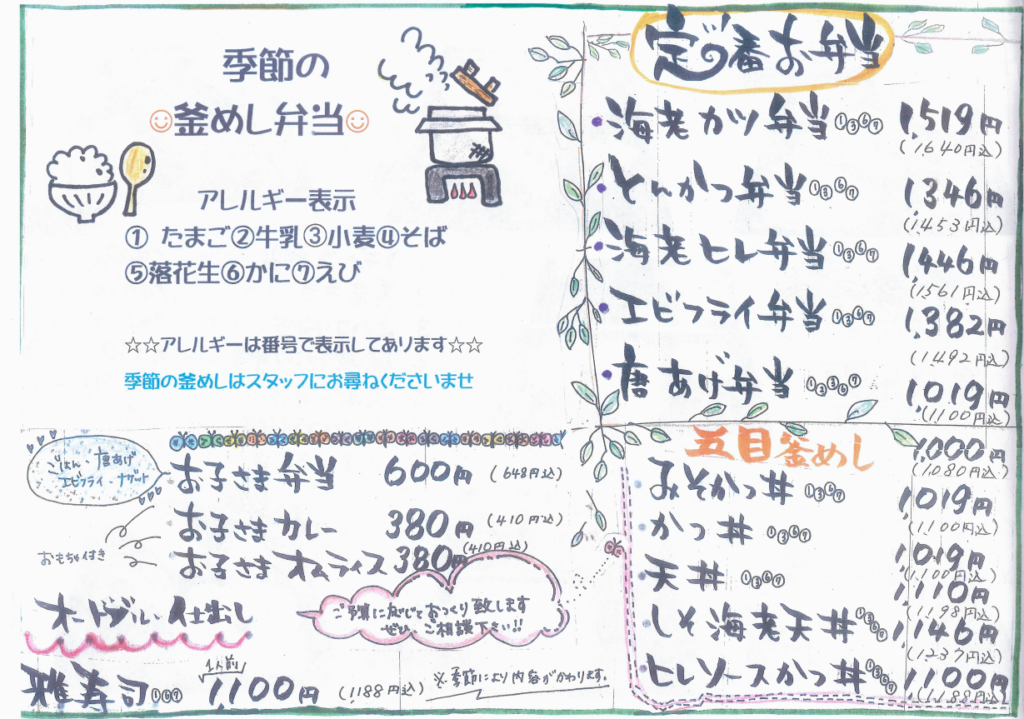 季節の
釜めし弁当
アレルギー表示
① たまご②牛乳③小麦④そば
⑤落花生⑥かに⑦えび
☆☆アレルギーは番号で表示してあります☆☆
季節の釜めしはスタッフにお尋ねくださいませ
定番お弁当
海老カツ弁当①③⑥⑦ 1,519円
(1,640円込)
とんかつ弁当①③⑥⑦ 1,346円
(1,453円込)
海老ヒレ弁当①③⑥⑦ 1,446円
(1,561円込)
エビフライ弁当①③⑥⑦ 1,382円
(1,492円込)
唐あげ弁当①②③⑥⑦ 1,019円
(1,100円込)
五目釜めし 1,000円
(1,080円込)
みそかつ丼①③⑥⑦ 1,019円
(1,100円込)
かつ丼①③⑥⑦ 1,019円
(1,100円込)
天丼①③⑥⑦ 1,110円
(1,198円込)
しそ海老天丼①③⑥⑦ 1,146円
(1,237円込)
ヒレソースかつ丼①③⑥⑦ 1,100円
(1,188円込)
ごはん・唐あげ
エビフライ・ナゲット
お子さま弁当 600円 (648円込)
お子さまカレー 380円 (410円込)
お子さまオムライス 380円 (410円込)
おもちゃ付き
オードブル・仕出し
ご予算に応じておつくり致します
ぜひ、ご相談下さい!!
雅寿司①⑥⑦ 1人前 1,100円 (1188円込)
※季節により内容がかわります。